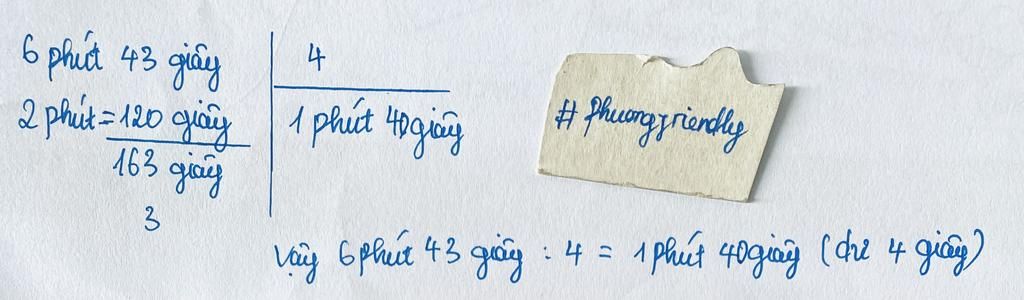 6 phút 43 giây
4
2 phút = 120 giây
1 phút 40 giây
163 giây
3
# phuongfriendly
Vậy 6 phút 43 giây : 4 = 1 phút 40 giây (dư 4 giây)